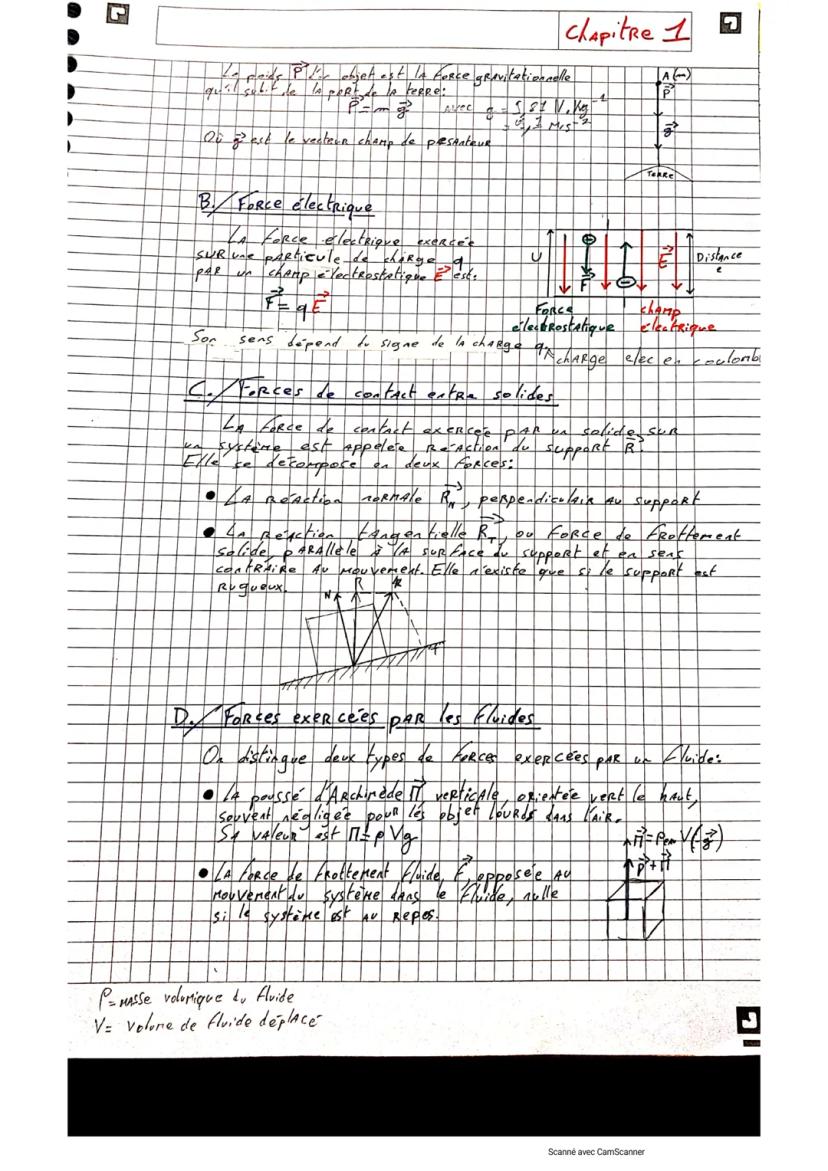 Chapitre 1
Le poids P⃗ d'un objet est la force gravitationnelle
qu'il subit de la part de la terre:
P⃗ = m g⃗ avec g = 9,81 N.Kg⁻¹
m.s⁻²
Où g⃗ est le vecteur champ de pesanteur
A (m)
P⃗
g⃗
Terre
B./ Force électrique
La force électrique exercée
sur une particule de charge q
par un champ électrostatique E⃗ est:
F⃗ = q E⃗
U
+
F⃗
-
E⃗
Distance
e
Force
électrostatique
champ
électrique
Son sens dépend du signe de la charge q
charge elec en coulomb
C./ Forces de contact entre solides
La force de contact exercée par un solide sur
un système est appelée réaction du support R⃗.
Elle se décompose en deux forces:
• La réaction normale R⃗N, perpendiculair au support
• La réaction tangentielle R⃗T, ou force de frottement
solide, parallèle à la surface du support et en sens
contraire au mouvement. Elle n'existe que si le support est
rugueux.
N R
T
D./ Forces exercées par les fluides
On distingue deux types de forces exercées par un fluide:
• La poussé d'Archimède Π⃗ verticale, orientée vert le haut,
souvent négligée pour les objet lourds dans l'air.
Sa valeur est Π = ρVg
Π⃗ = ρeau V(-g⃗)
P⃗ + Π⃗
• La force de frottement fluide, f⃗, opposée au
mouvement du système dans le fluide, nulle
si le système est au repos.
ρ = masse volumique du fluide
V = volume de fluide déplacé
Scanné avec CamScanner